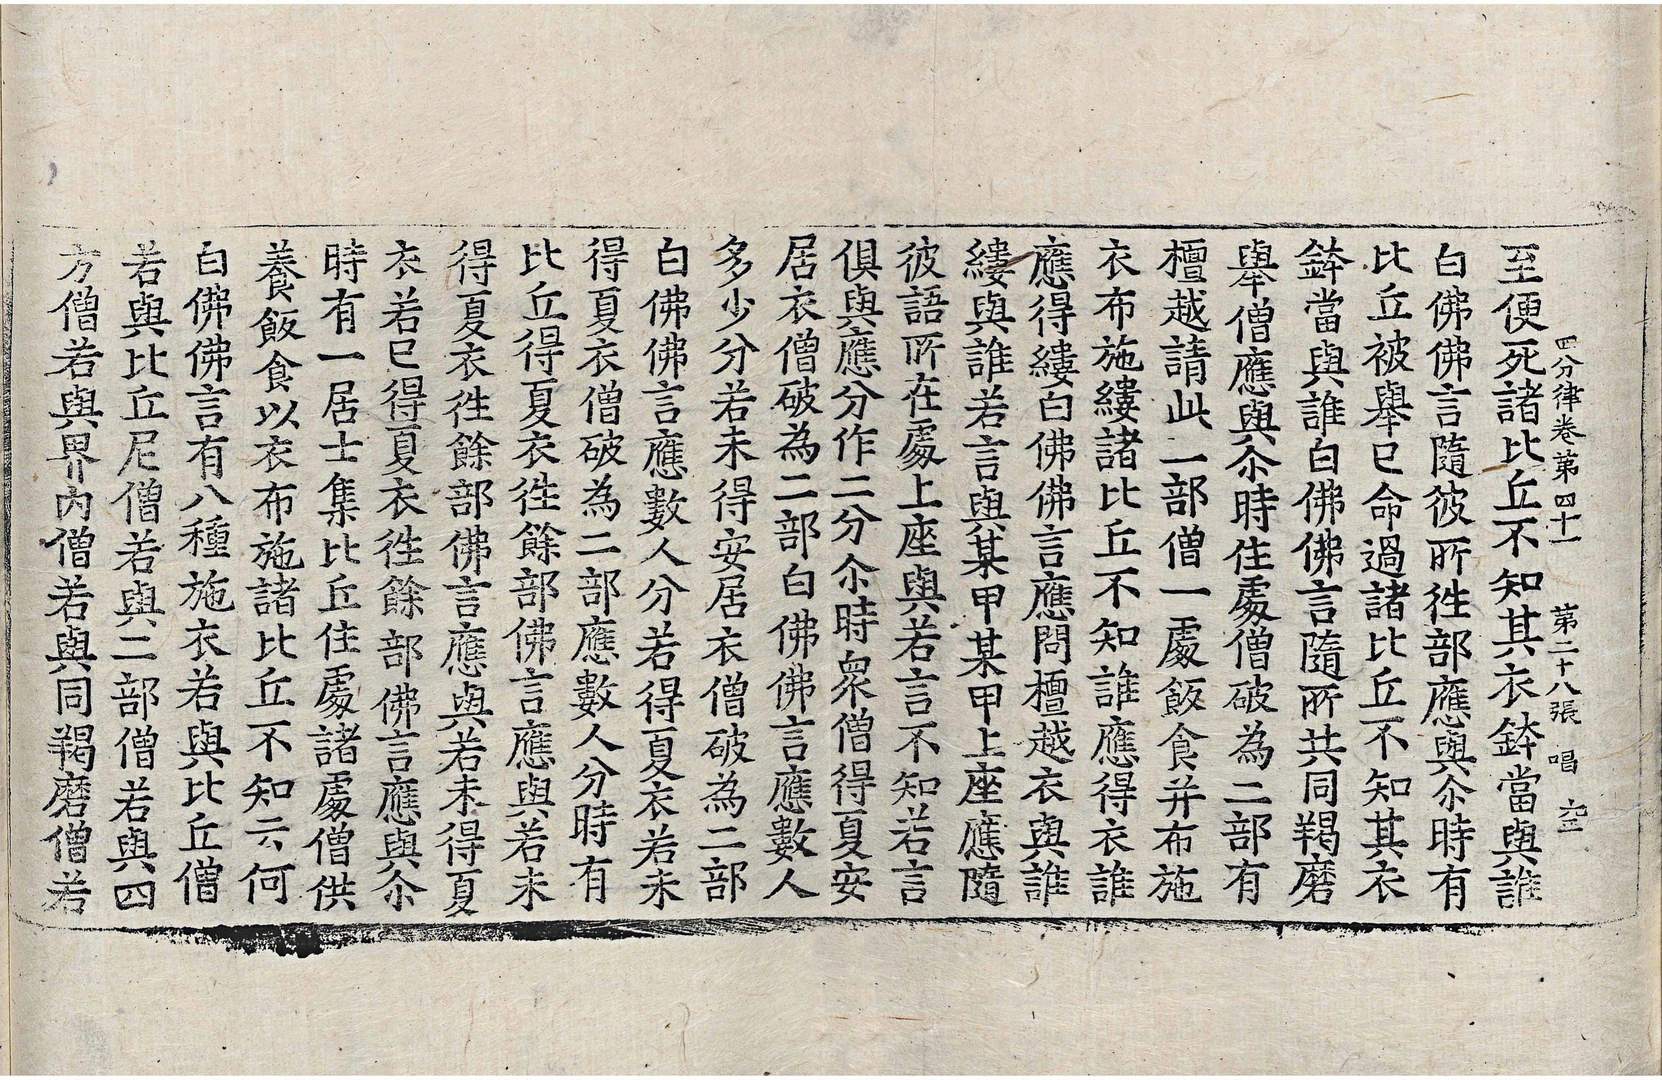 四分律卷第四十一 第二十八張 唱
至便死諸比丘不知其衣鉢當與誰
白佛佛言隨彼所徃部應與尒時有
比丘被舉已命過諸比丘不知其衣
鉢當與誰白佛佛言隨所共同羯磨
舉僧應與尒時住處僧破為二部有
檀越請此二部僧一處飯食并布施
衣布施縷諸比丘不知誰應得衣誰
應得縷白佛佛言應問檀越衣與誰
縷與誰若言與某甲某甲上座應隨
彼語所在處上座與若言不知若言
俱與應分作二分尒時衆僧得夏安
居衣僧破為二部白佛佛言應數人
多少分若未得安居衣僧破為二部
白佛佛言應數人分若得夏衣若未
得夏衣僧破為二部應數人分時有
比丘得夏衣徃餘部佛言應與若未
得夏衣徃餘部佛言應與若未得夏
衣若已得夏衣徃餘部佛言應與尒
時有一居士集比丘住處諸處僧供
養飯食以衣布施諸比丘不知云何
白佛佛言有八種施衣若與比丘僧
若與比丘尼僧若與二部僧若與四
方僧若與界內僧若與同羯磨僧若